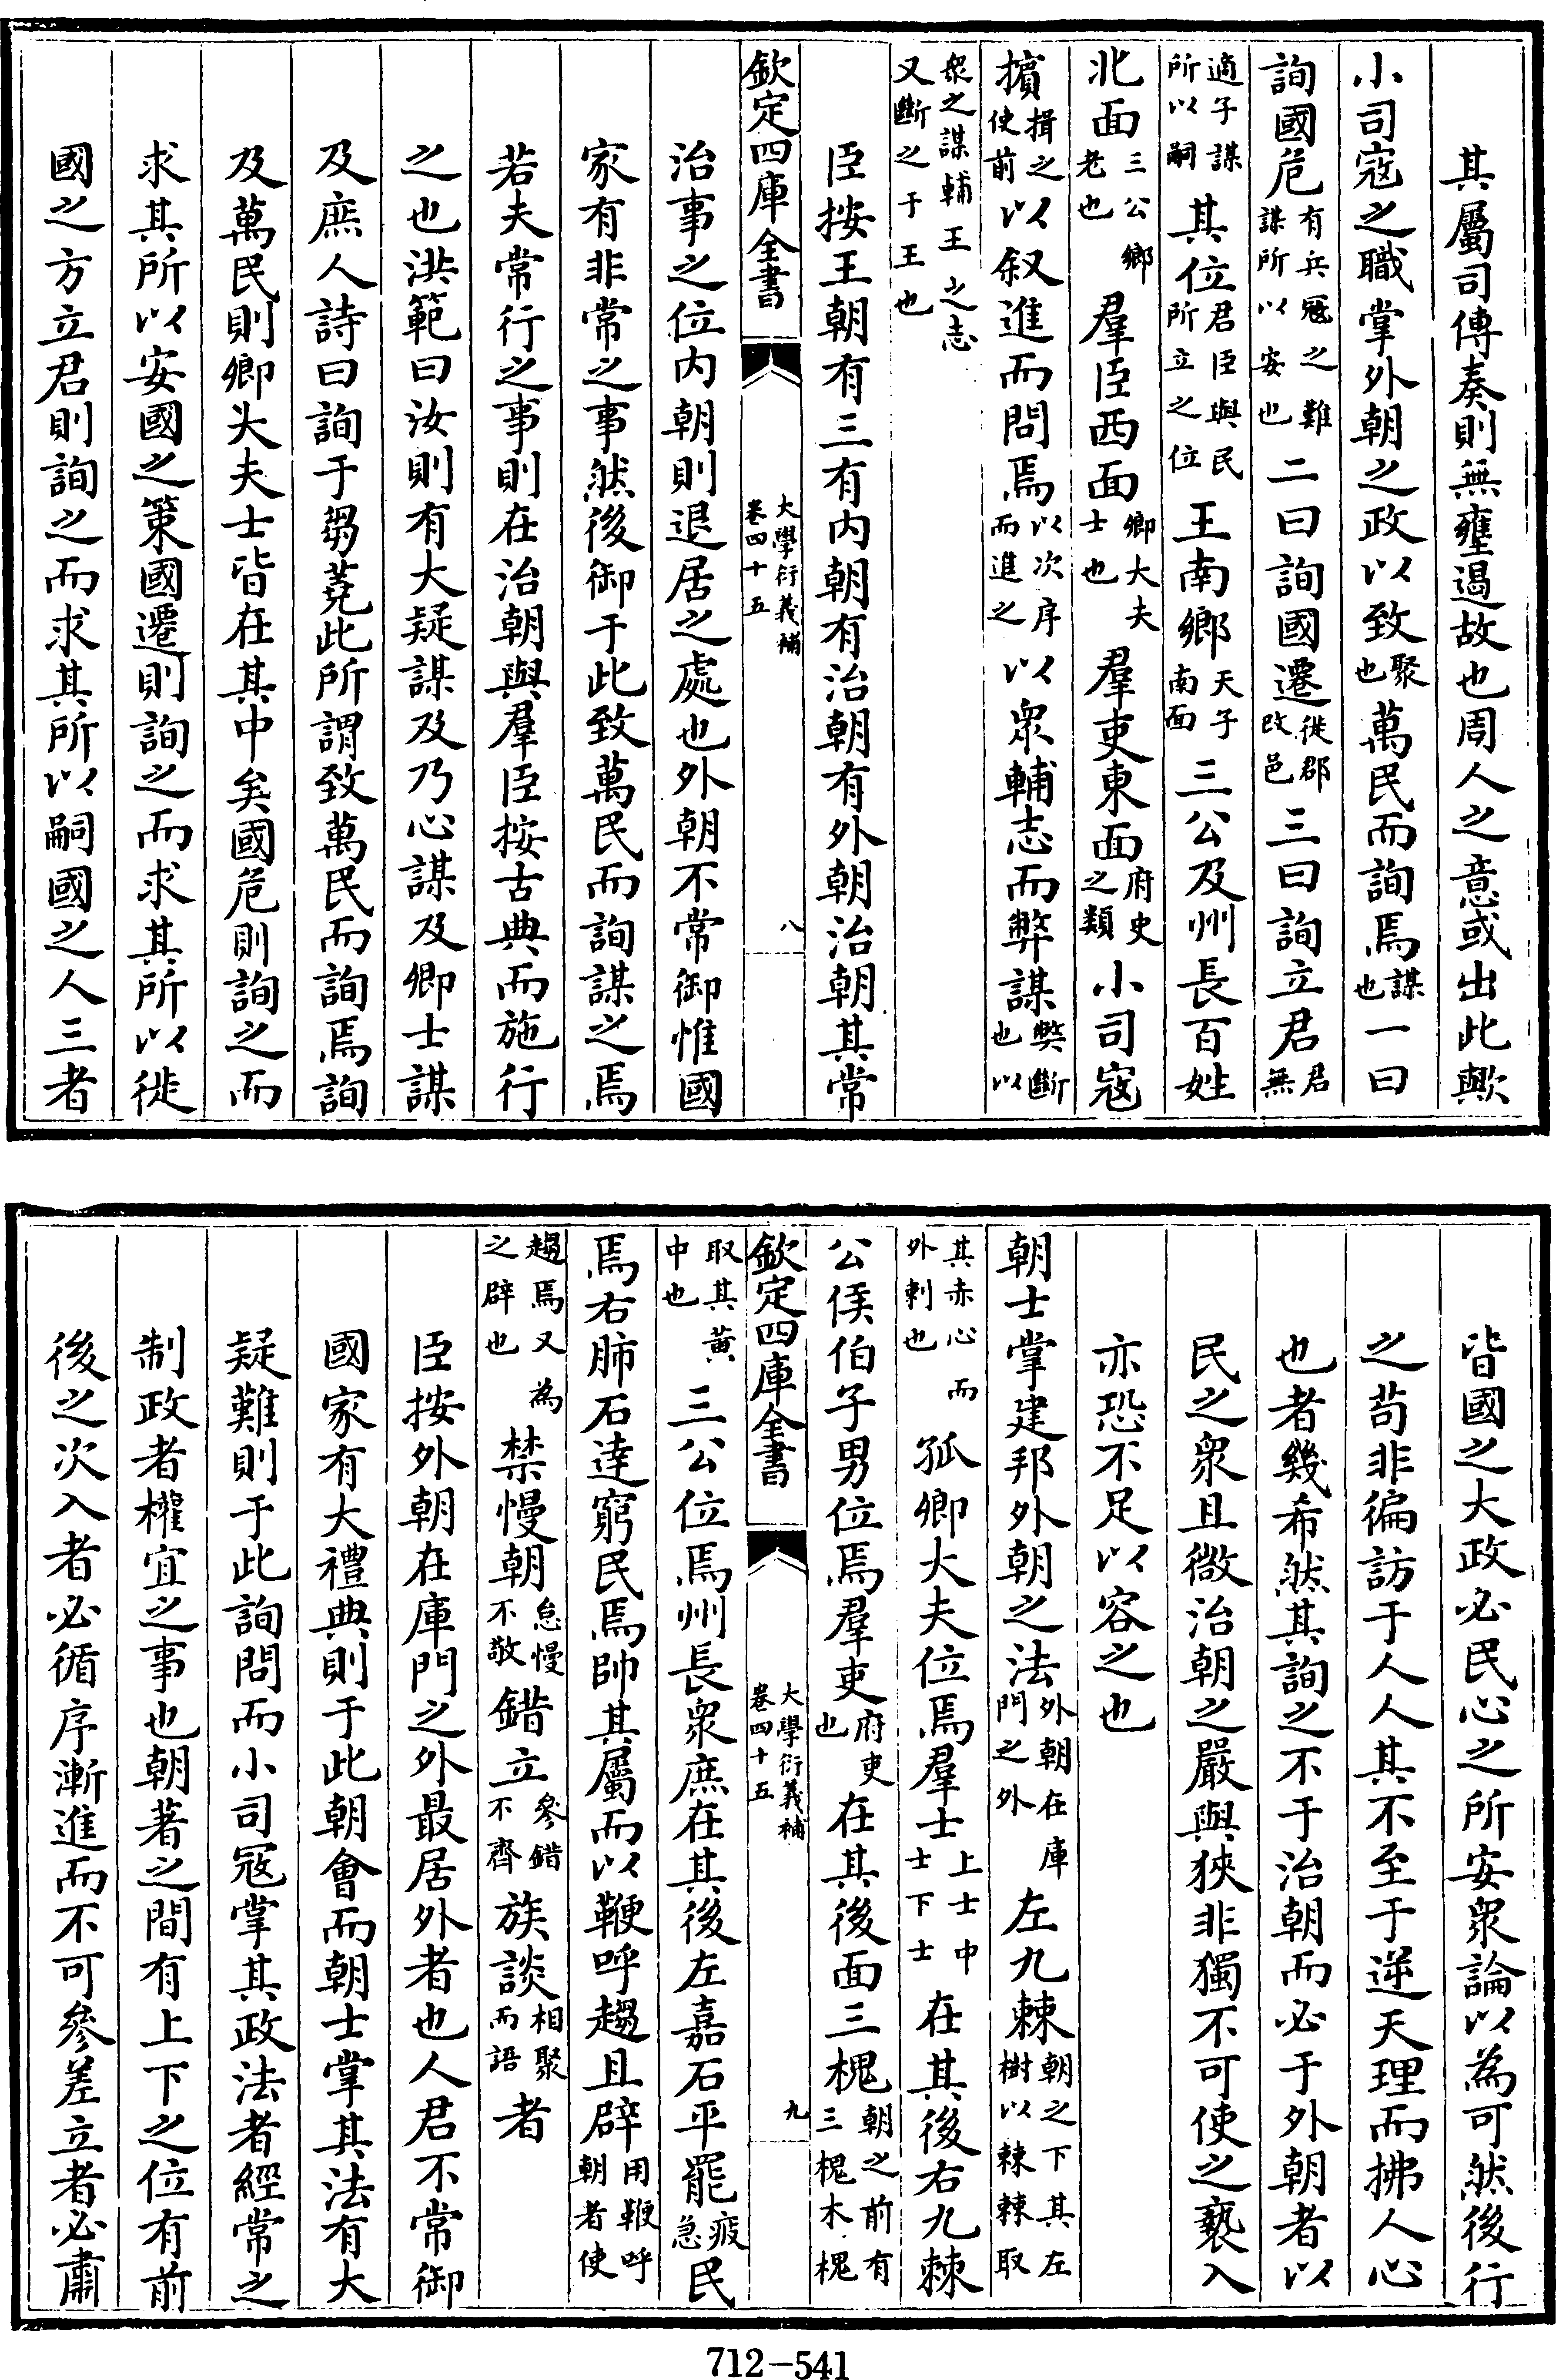 其屬司傳奏則無壅遏故也周人之意或出此歟
小司寇之職掌外朝之政以致聚也萬民而詢焉謀也一曰
詢國危有兵寇之難謀所以安也二曰詢國遷徙郡改邑三曰詢立君君無
適子謀所以嗣其位君臣與民所立之位王南鄉天子南面三公及州長百姓
北面三公鄉老也羣臣西面卿大夫士也羣吏東面府史之類小司寇
擯揖之使前以叙進而問焉以次序而進之以眾輔志而弊謀弊斷也以
眾之謀輔王之志又斷之于王也
臣按王朝有三有内朝有治朝有外朝治朝其常
欽定四庫全書
大學衍義補
卷四十五
八
治事之位内朝則退居之處也外朝不常御惟國
家有非常之事然後御于此致萬民而詢謀之焉
若夫常行之事則在治朝與羣臣按古典而施行
之也洪範曰汝則有大疑謀及乃心謀及卿士謀
及庶人詩曰詢于芻蕘此所謂致萬民而詢焉詢
及萬民則卿大夫士皆在其中矣國危則詢之而
求其所以安國之策國遷則詢之而求其所以徙
國之方立君則詢之而求其所以嗣國之人三者
皆國之大政必民心之所安衆論以為可然後行
之苟非徧訪于人人其不至于逆天理而拂人心
也者幾希然其詢之不于治朝而必于外朝者以
民之衆且微治朝之嚴與狹非獨不可使之褻入
亦恐不足以容之也
朝士掌建邦外朝之法外朝在庫門之外左九棘朝之下其左樹以棘棘取
其赤心而外刺也孤卿大夫位焉羣士上士中士下士在其後右九棘
公侯伯子男位焉羣吏府吏也在其後面三槐朝之前有三槐木槐
欽定四庫全書
大學衍義補
卷四十五
九
取其黄中也三公位焉州長衆庶在其後左嘉石平罷疲怠民
焉右肺石達窮民焉帥其屬而以鞭呼趨且辟用鞭呼朝者使
趨焉又為之辟也禁慢朝怠慢不敬錯立參錯不齊族談相聚而語者
臣按外朝在庫門之外最居外者也人君不常御
國家有大禮典則于此朝會而朝士掌其法有大
疑難則于此詢問而小司寇掌其政法者經常之
制政者權宜之事也朝著之間有上下之位有前
後之次入者必循序漸進而不可參差立者必肅
712-541